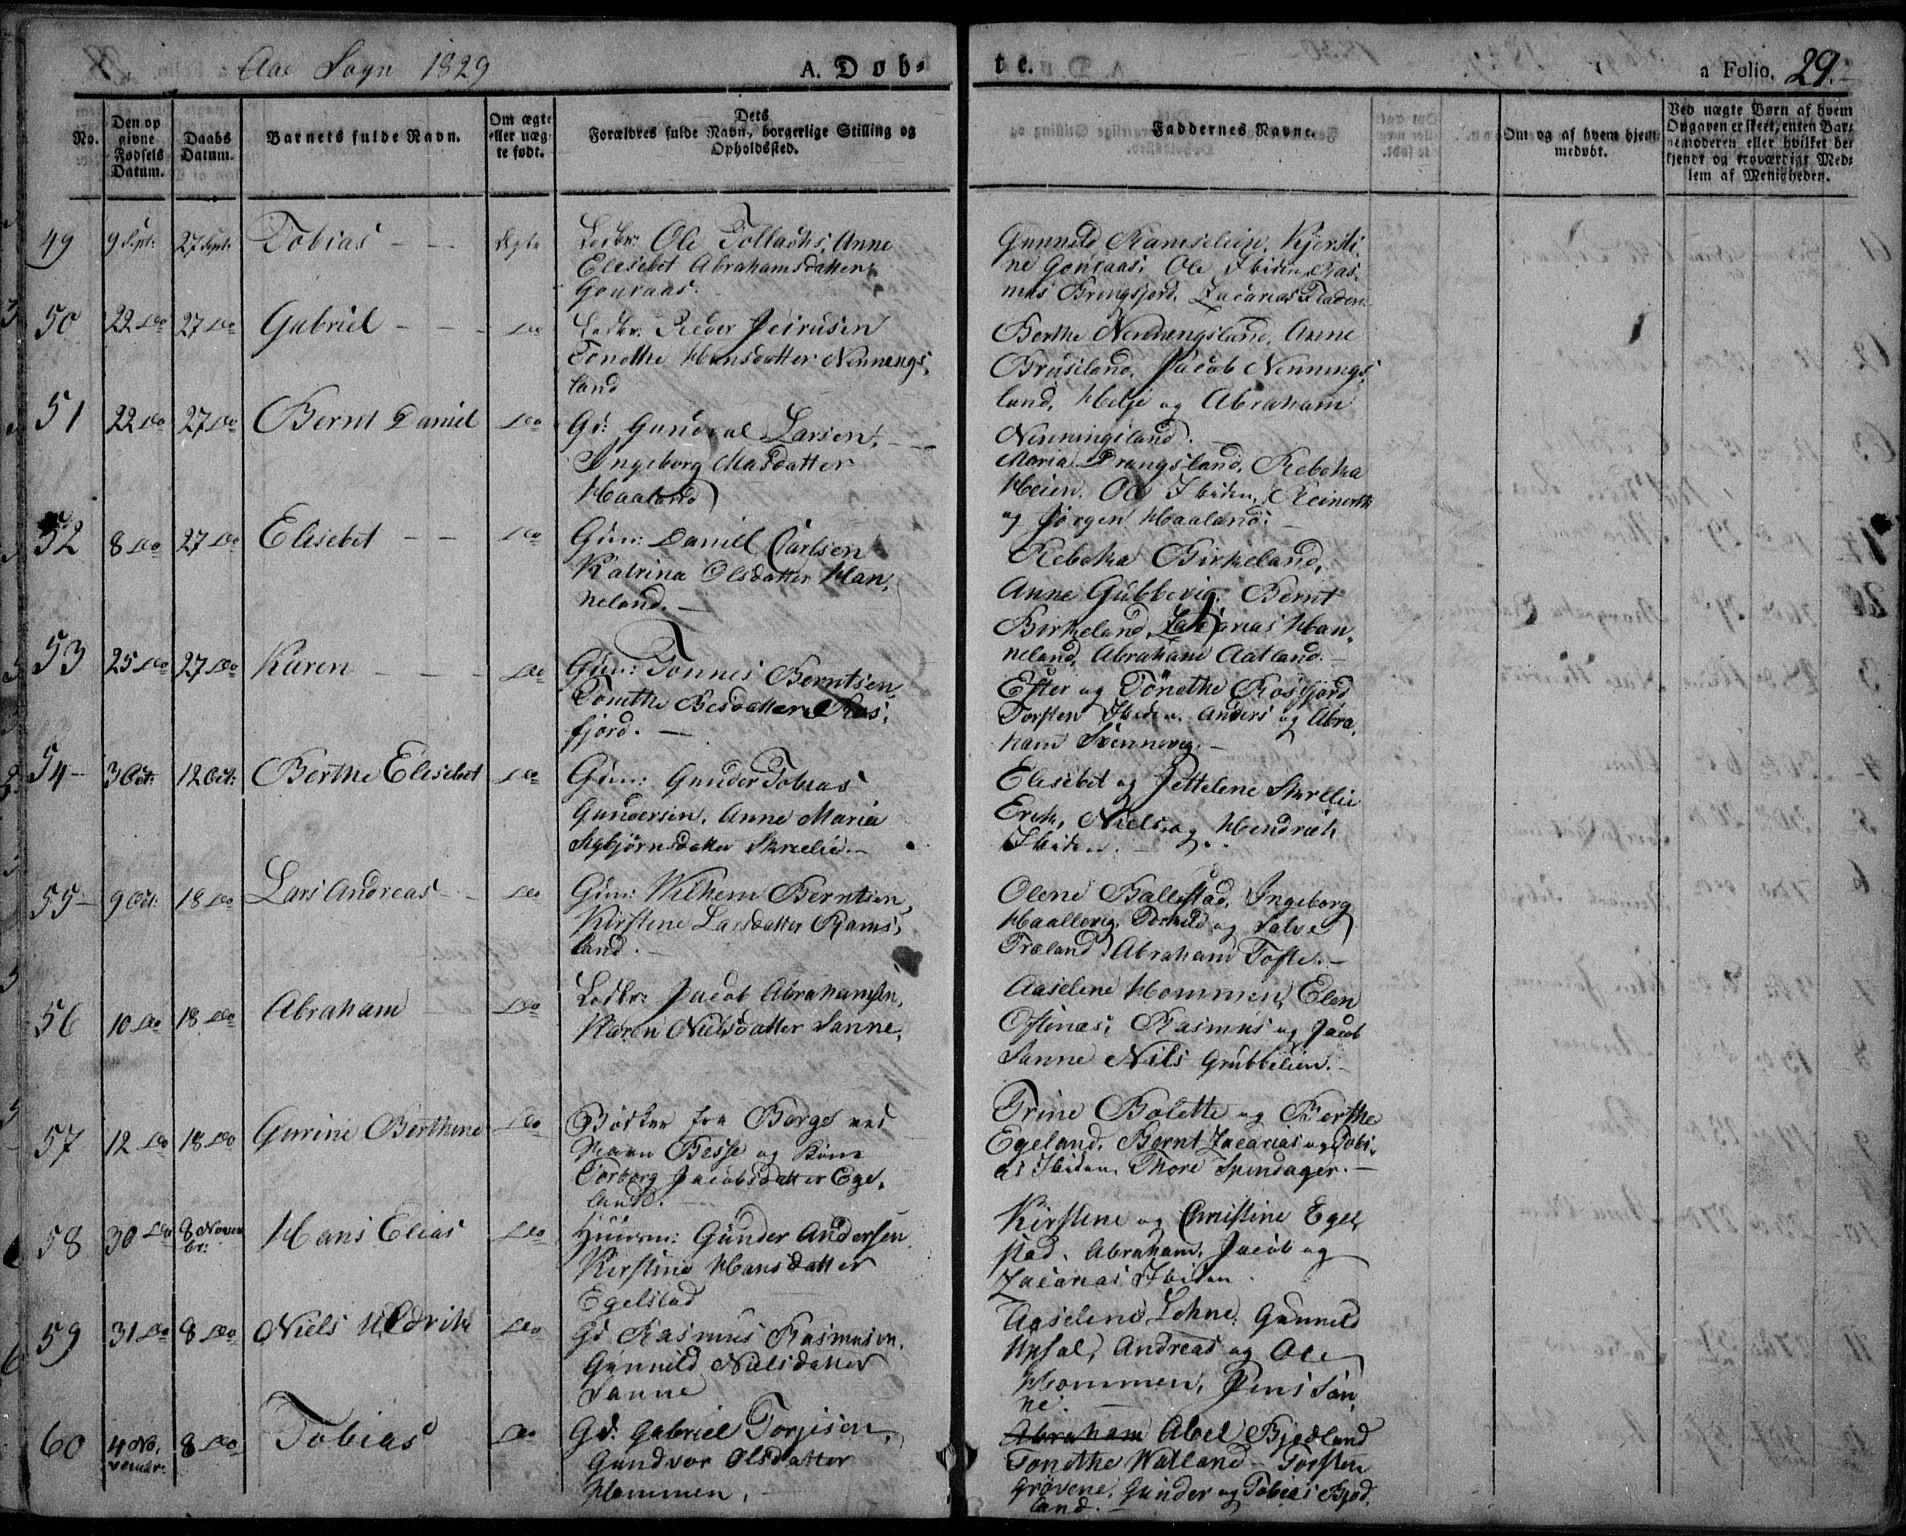 Aae Sogn 1829
A. Døb-
te.
a Folio. 29.
No.
Den op
givne
Fødsels
Datum.
Daabs
Datum.
Barnets fulde Navn.
Om ægte
eller uæg-
te født.
Dets
Forældres fulde Navn, borgerlige Stilling og
Opholdssted.
Faddernes Navne.
Om og af hvem hjem-
medøbt.
Ved uægte Børn af hvem
Opgaven er skeet, enten Bar-
nemoderen eller hvilket be-
kjendt og troværdigt Med-
lem af Menigheden.
49 9 Sept: 27 Sept: Tobias - - Ægte
Ledbr: Ole Tollachs, Anne
Elisebet Abrahamsdatter
Gouraas.
Gunneld Ramsleien, Kjersti
ne Gouraas, Ole Ibiden, Ras-
mus Bringsjord, Zacarias Fladen
50 22 Do 27 Do Gabriel - - - Do
Ledbr: Reder Peirusen
Tonethe Hansdatter Nennings-
land
Berthe Nenningsland, Anne
Bruseland, Jacob Nennings-
land, Helje og Abraham
Nenningsland.
51 22 Do 27 Do Bernt Daniel Do
Gd: Gundval Larsen,
Ingeborg Masdatter
Haaland
Maria Drangsland, Rebeka
Heien, Ole Ibiden, Reinerth
og Jørgen Haaland.
52 8 Do 27 Do Elisebet - - Do
Gdm: Daniel Carlsen
Katrina Olsdatter Han-
neland.
Rebeka Birkeland,
Anne Gubbevig, Bernt
Birkeland, Zakarias Han-
neland, Abraham Aatland.
53 25 Do 27 Do Karen - - - Do
Gdm: Tonnes Berntsen,
Tonethe Besdatter Ros-
fjord.
Ester og Tönethe Rosfjord
Torsten Ibiden, Anders og Abra-
ham Svennevig.
54 3 Oct: 12 Oct: Berthe Elisebet Do
Gdm: Gunder Tobias
Gundersen, Anne Maria
Asbjørnsdatter Skrelie.
Elisebet og Pettelene Skrelie
Erik, Niels og Hendrich
Ibiden.
55 9 Oct: 18 Do Lars Andreas - - Do
Gdm: Wilhem Berntsen,
Kirstene Larsdatter Rams-
land.
Olene Ballestad, Ingeborg
Haallevig, Torkild og Salve
Træland, Abraham Tofte.
56 10 Do 18 Do Abraham Do
Ledbr: Jacob Abrahamsen,
Karen Nielsdatter Sanne.
Aaselene Hommen, Elen
Oftenæs, Rasmus og Jacob
Sanne Nils Grubbelien.
57 12 Do 18 Do Gurine Berthine Do
Bødker fra Borge ved
Navn Besse og Kone
Torborg Jacobsdatter Ege-
land.
Trine Bolette og Berthe
Egeland, Bernt Zacarias og Tobi-
as Ibiden, Thore Spindager.
58 30 Do 8 Novem
br: Hans Elias Do
Huusm: Gunder Andersen
Kirstine Hansdatter
Egelstad
Kirstene og Christine Egel-
stad. Abraham, Jacob og
Zacarias Ibiden.
59 31 Do 8 Do Niels Uldrik Do
Gd Rasmus Rasmusen.
Gunnild Nielsdatter
Sanne
Aaselene Lohne, Gunneld
Upsal, Andreas og Ole
Hommen, Jens San-
ne.
60 4 No-
vembr: 8 Do Tobias Do
Gd: Gabriel Torjesen,
Gundvor Olsdatter
Hommen.
Abraham Abel Bjedland
Tonethe Walland Torsten
Grøvene, Gunder og Tobias Bjed-
land.